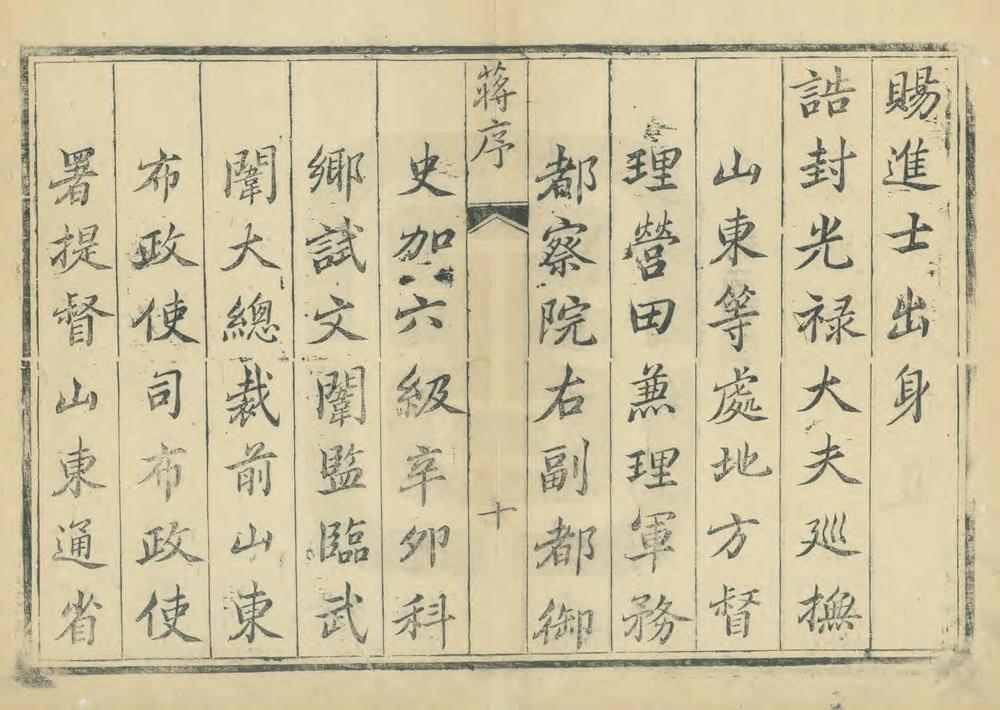 賜進士出身
誥封光禄大夫廵撫
山東等處地方督
理營田兼理軍務
都察院右副都御
蔣序
十
史加六級辛卯科
鄉試文闈監臨武
闈大總裁前山東
布政使司布政使
署提督山東通省